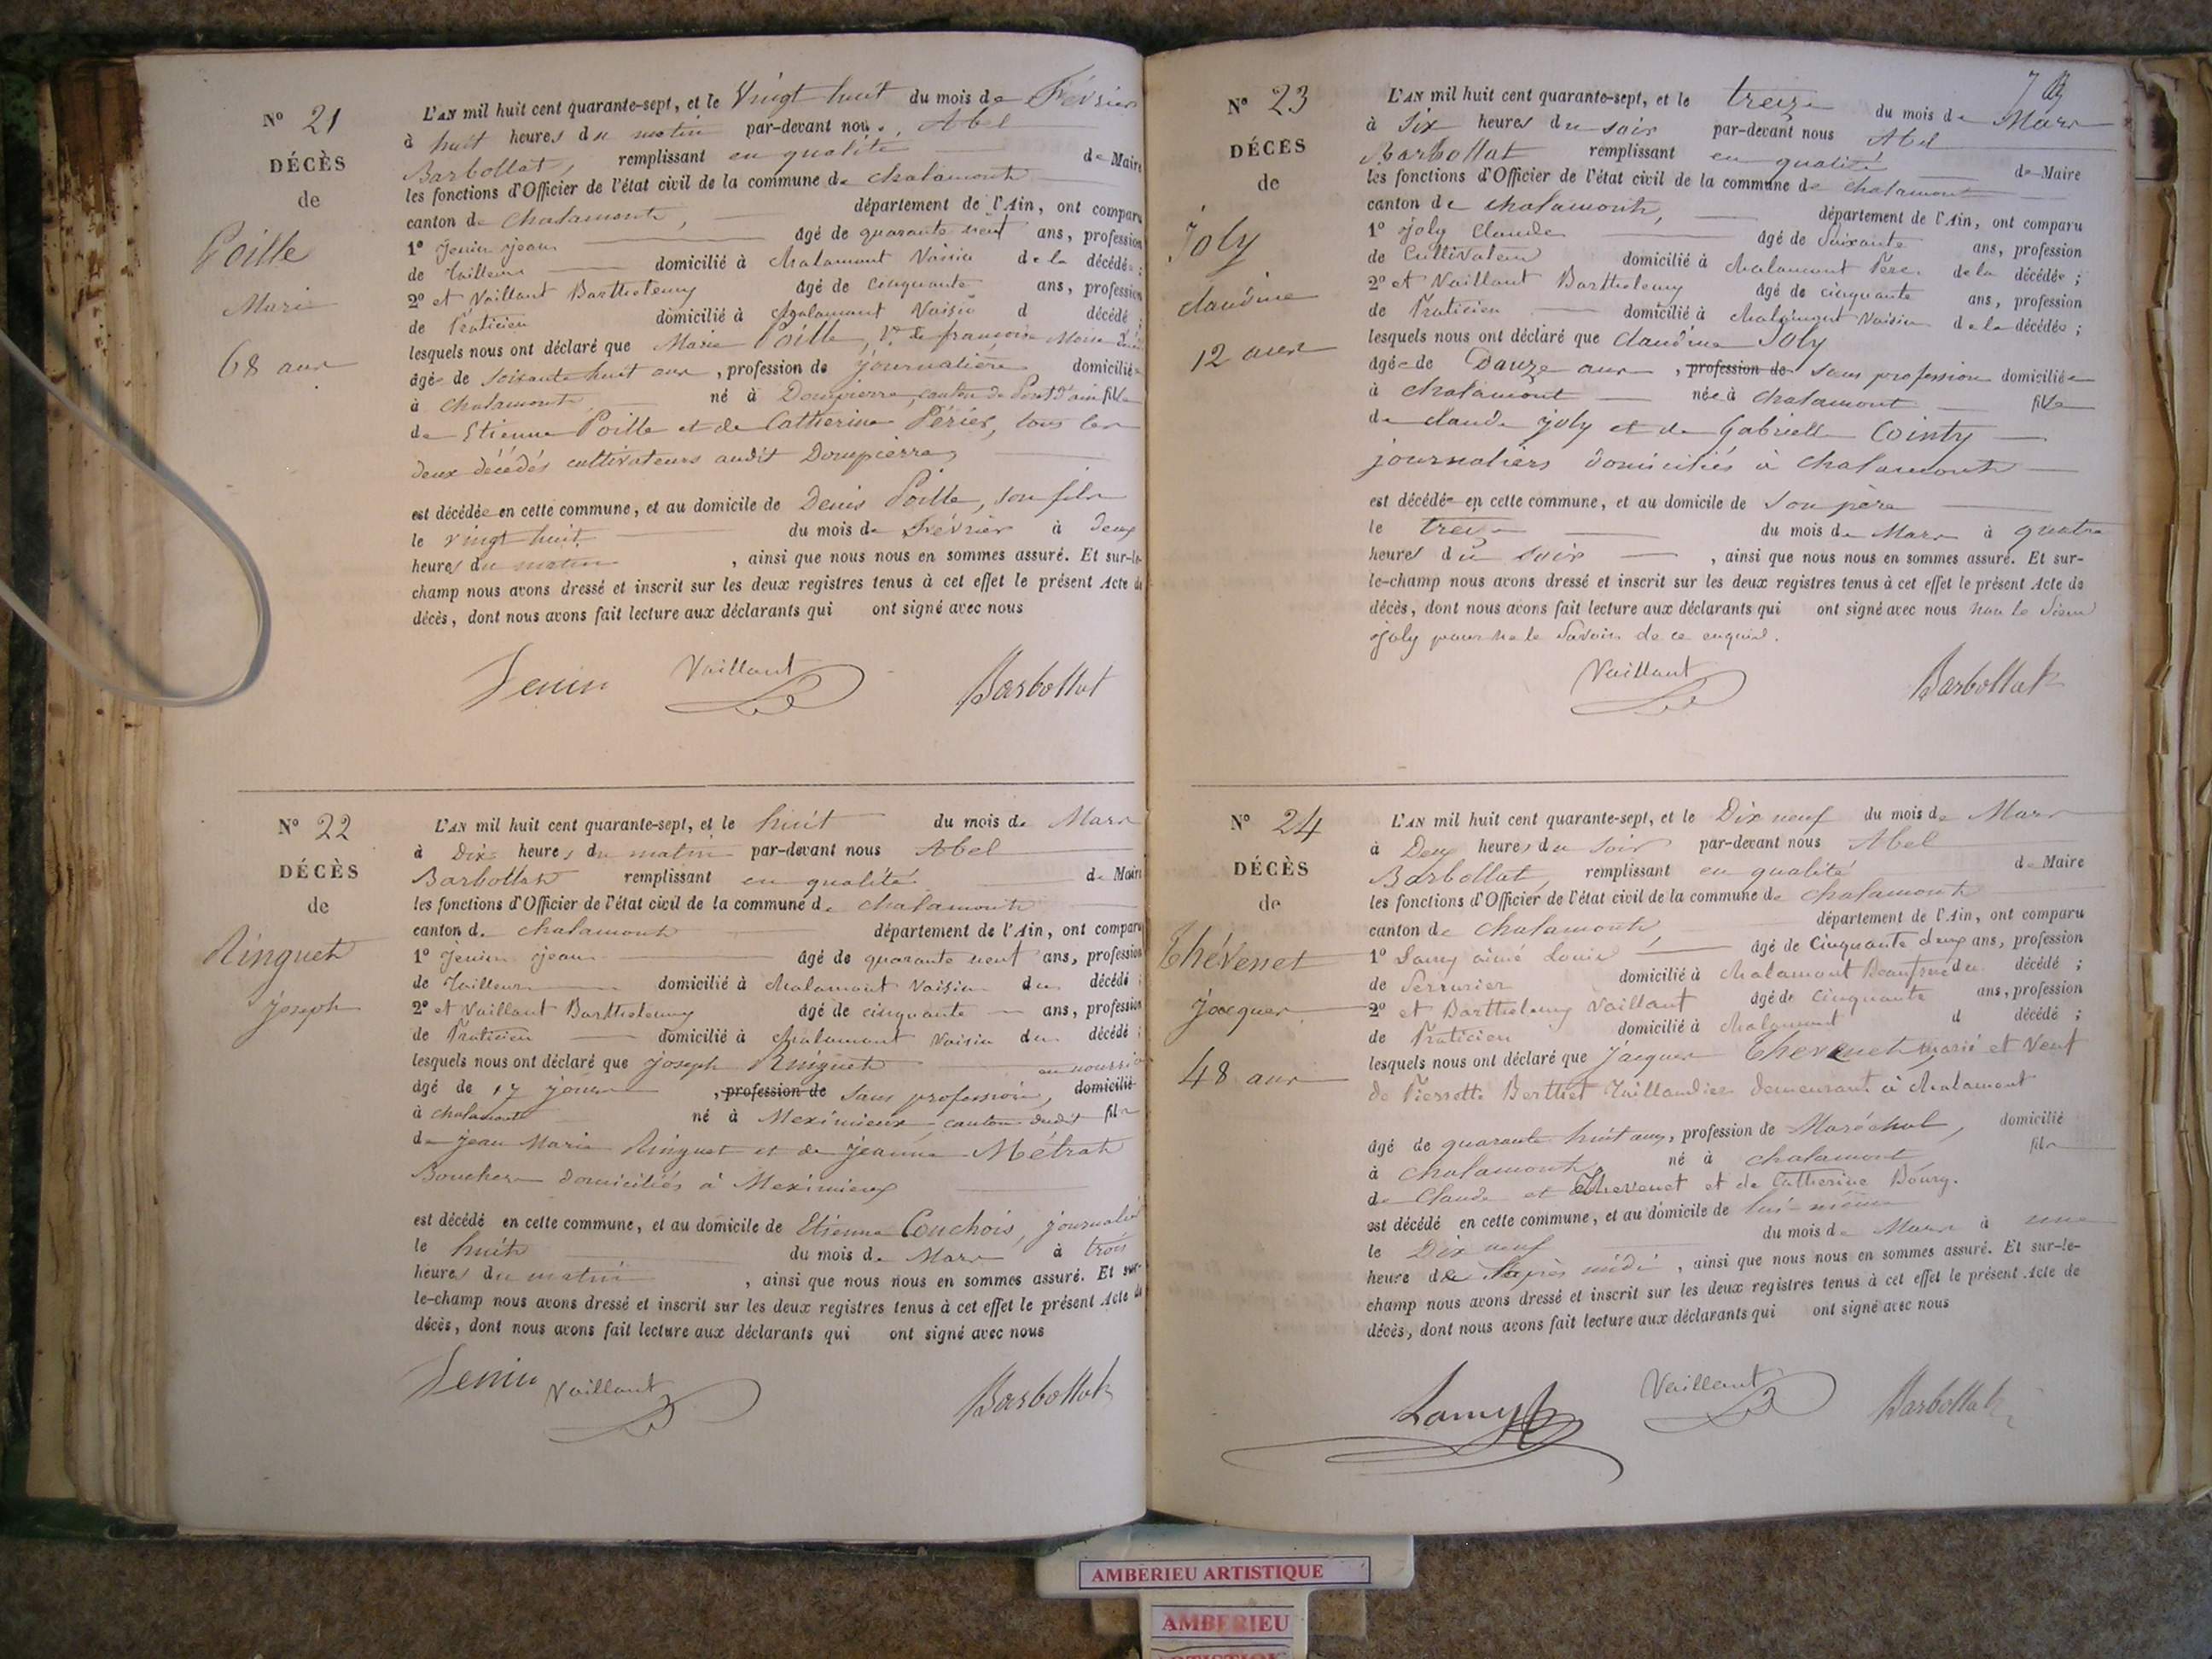 N° 21
DÉCÈS
de
Poille
Marie
68 ans
L'AN mil huit cent quarante-sept, et le Vingt huit du mois de Février
à huit heures du matin par-devant nous, Abel
Barbollat, remplissant en qualité de Maire
les fonctions d'Officier de l'état civil de la commune de Chalamont
canton de Chalamont, département de l'Ain, ont comparu
1° Jenin Jean âgé de quarante neuf ans, profession
de Tailleur domicilié à Chalamont Voisin de la décédée;
2° et Vaillant Barthelemy âgé de cinquante ans, profession
de Praticien domicilié à Chalamont Voisin d décédé;
lesquels nous ont déclaré que Marie Poille, Ve de françois Marie
âgée de soixante huit ans, profession de journalière domiciliée
à Chalamont né à Dompierre, canton de Pont d'ain fille
de Etienne Poille et de Catherine Périer, tous les
deux décédés cultivateurs audit Dompierre,
est décédée en cette commune, et au domicile de Denis Poille, son fils
le vingt huit du mois de Février à deux
heures du matin, ainsi que nous nous en sommes assuré. Et sur-le-
champ nous avons dressé et inscrit sur les deux registres tenus à cet effet le présent Acte de
décès, dont nous avons fait lecture aux déclarants qui ont signé avec nous
Jenin Vaillant Barbollat
N° 22
DÉCÈS
de
Ringuet
Joseph
L'AN mil huit cent quarante-sept, et le huit du mois de Mars
à Dix heures du matin par-devant nous Abel
Barbollat remplissant en qualité de Maire
les fonctions d'Officier de l'état civil de la commune de Chalamont
canton de Chalamont département de l'Ain, ont comparu
1° Jenin Jean âgé de quarante neuf ans, profession
de Tailleur domicilié à Chalamont Voisin du décédé;
2° et Vaillant Barthelemy âgé de cinquante ans, profession
de Praticien domicilié à Chalamont Voisin du décédé;
lesquels nous ont déclaré que Joseph Ringuet
âgé de 17 jours, profession de sans profession, domicilié en nourrice
à Chalamont né à Meximieux canton dudit fils
de Jean Marie Ringuet et de Jeanne Métrat
Bouchers domiciliés à Meximieux
est décédé en cette commune, et au domicile de Etienne Couchois, journalier
le huit du mois de Mars à trois
heures du matin, ainsi que nous nous en sommes assuré. Et sur-
le-champ nous avons dressé et inscrit sur les deux registres tenus à cet effet le présent Acte de
décès, dont nous avons fait lecture aux déclarants qui ont signé avec nous
Jenin Vaillant Barbollat
N° 23
DÉCÈS
de
Joly
claudine
12 ans
L'AN mil huit cent quarante-sept, et le treize du mois de Mars
à Six heures du soir par-devant nous Abel
Barbollat remplissant en qualité de Maire
les fonctions d'Officier de l'état civil de la commune de Chalamont
canton de Chalamont, département de l'Ain, ont comparu
1° Joly Claude âgé de Soixante ans, profession
de Cultivateur domicilié à Chalamont Père de la décédée;
2° et Vaillant Barthelemy âgé de cinquante ans, profession
de Praticien domicilié à Chalamont Voisin de la décédée;
lesquels nous ont déclaré que claudine Joly
âgée de Douze ans, profession de sans profession domiciliée
à Chalamont née à Chalamont fille
de claude Joly et de Gabrielle Cointy
journaliers domiciliés à Chalamont
est décédée en cette commune, et au domicile de son père
le treize du mois de Mars à quatre
heures du soir, ainsi que nous nous en sommes assuré. Et sur-
le-champ nous avons dressé et inscrit sur les deux registres tenus à cet effet le présent Acte de
décès, dont nous avons fait lecture aux déclarants qui ont signé avec nous non le Sieur
Joly pour ne le Savoir de ce enquis.
Vaillant Barbollat
N° 24
DÉCÈS
de
Thévenet
Jacques
48 ans
L'AN mil huit cent quarante-sept, et le Dix neuf du mois de Mars
à Deux heures du soir par-devant nous Abel
Barbollat, remplissant en qualité de Maire
les fonctions d'Officier de l'état civil de la commune de Chalamont
canton de Chalamont, département de l'Ain, ont comparu
1° Lamy aimé Louis âgé de Cinquante deux ans, profession
de Serrurier domicilié à Chalamont Beaufrère du décédé;
2° et Barthelemy Vaillant âgé de cinquante ans, profession
de Praticien domicilié à Chalamont d décédé;
lesquels nous ont déclaré que Jacques Thevenet marié et Veuf
de Pierrotte Berthet Taillandier demeurant à Chalamont
âgé de quarante huit ans, profession de Maréchal, domicilié
à Chalamont, né à Chalamont fils
de Claude et Thevenet et de Catherine Boury.
est décédé en cette commune, et au domicile de lui-même
le Dix neuf du mois de Mars à une
heure de l'après midi, ainsi que nous nous en sommes assuré. Et sur-le-
champ nous avons dressé et inscrit sur les deux registres tenus à cet effet le présent Acte de
décès, dont nous avons fait lecture aux déclarants qui ont signé avec nous
Lamy Vaillant Barbollat
AMBERIEU ARTISTIQUE
AMBERIEU
ARTISTIQUE